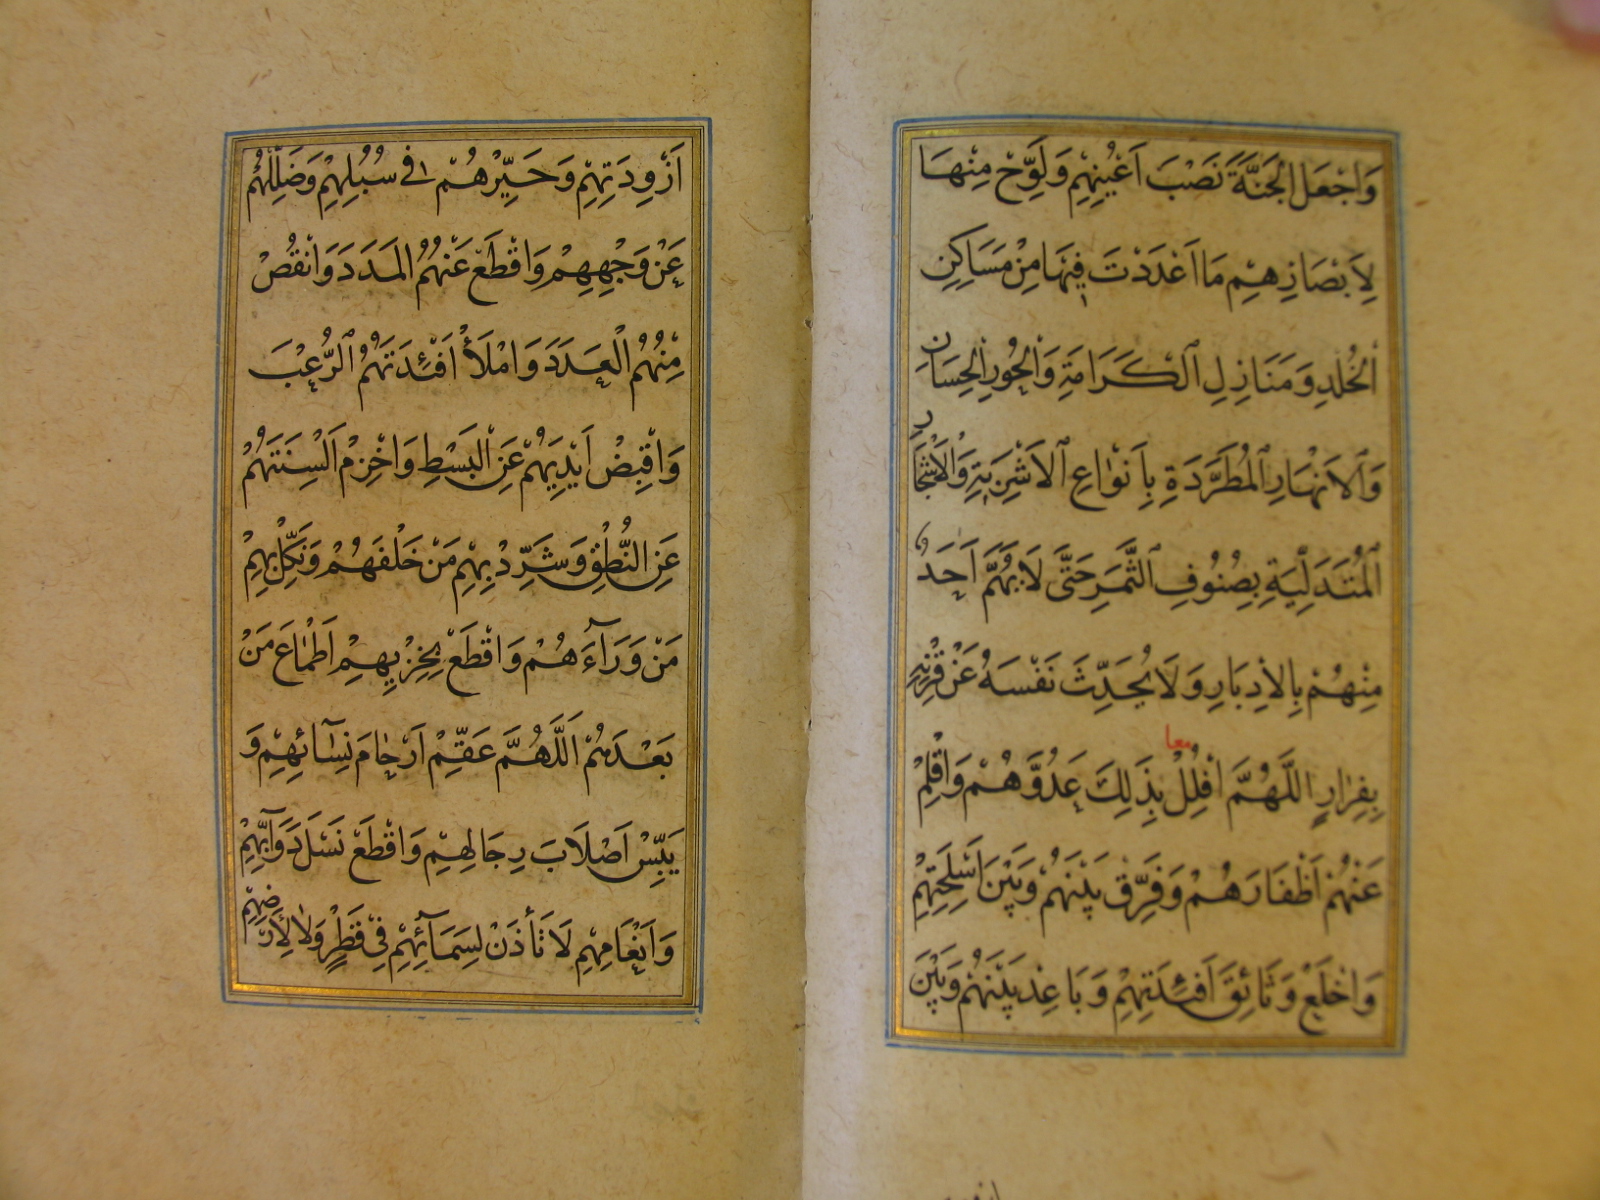 وَاجْعَلِ الْجَنَّةَ نَصْبَ اَعْيُنِهِمْ وَلَوِّحْ مِنْهَا
لِاَبْصَارِهِمْ مَا اَعْدَدْتَ فِيهَا مِنْ مَسَاكِنِ
الْخُلْدِ وَمَنَازِلِ الْكَرَامَةِ وَالْحُورِ الْحِسَانِ
وَالْاَنْهَارِ الْمُطَّرِدَةِ بِاَنْوَاعِ الْاَشْرِبَةِ وَالْاَشْجَارِ
الْمُتَدَلِّيَةِ بِصُنُوفِ الثَّمَرِ حَتَّى لَا يَهُمَّ اَحَدٌ
مِنْهُمْ بِالْاِدْبَارِ وَلَا يُحَدِّثَ نَفْسَهُ عَنْ قِرْنِهِ
معا
بِفِرَارٍ اللَّهُمَّ افْلُلْ بِذَلِكَ عَدُوَّهُمْ وَاقْلِمْ
عَنْهُمْ اَظْفَارَهُمْ وَفَرِّقْ بَيْنَهُمْ وَبَيْنَ اَسْلِحَتِهِمْ
وَاخْلَعْ وَثَائِقَ اَفْئِدَتِهِمْ وَبَاعِدْ بَيْنَهُمْ وَبَيْنَ
اَزْوِدَتِهِمْ وَحَيِّرْهُمْ فِي سُبُلِهِمْ وَضَلِّلْهُمْ
عَنْ وَجْهِهِمْ وَاقْطَعْ عَنْهُمُ الْمَدَدَ وَانْقُصْ
مِنْهُمُ الْعَدَدَ وَامْلَأْ اَفْئِدَتَهُمُ الرُّعْبَ
وَاقْبِضْ اَيْدِيَهُمْ عَنِ الْبَسْطِ وَاخْزِمْ اَلْسِنَتَهُمْ
عَنِ النُّطْقِ وَشَرِّدْ بِهِمْ مَنْ خَلْفَهُمْ وَنَكِّلْ بِهِمْ
مَنْ وَرَآءَهُمْ وَاقْطَعْ بِخِزْيِهِمْ اَطْمَاعَ مَنْ
بَعْدَهُمْ اَللَّهُمَّ عَقِّمْ اَرْحَامَ نِسَائِهِمْ وَ
يَبِّسْ اَصْلَابَ رِجَالِهِمْ وَاقْطَعْ نَسْلَ دَوَآبِّهِمْ
وَاَنْعَامِهِمْ لَا تَأْذَنْ لِسَمَآئِهِمْ فِي قَطْرٍ وَلَا لِاَرْضِهِمْ